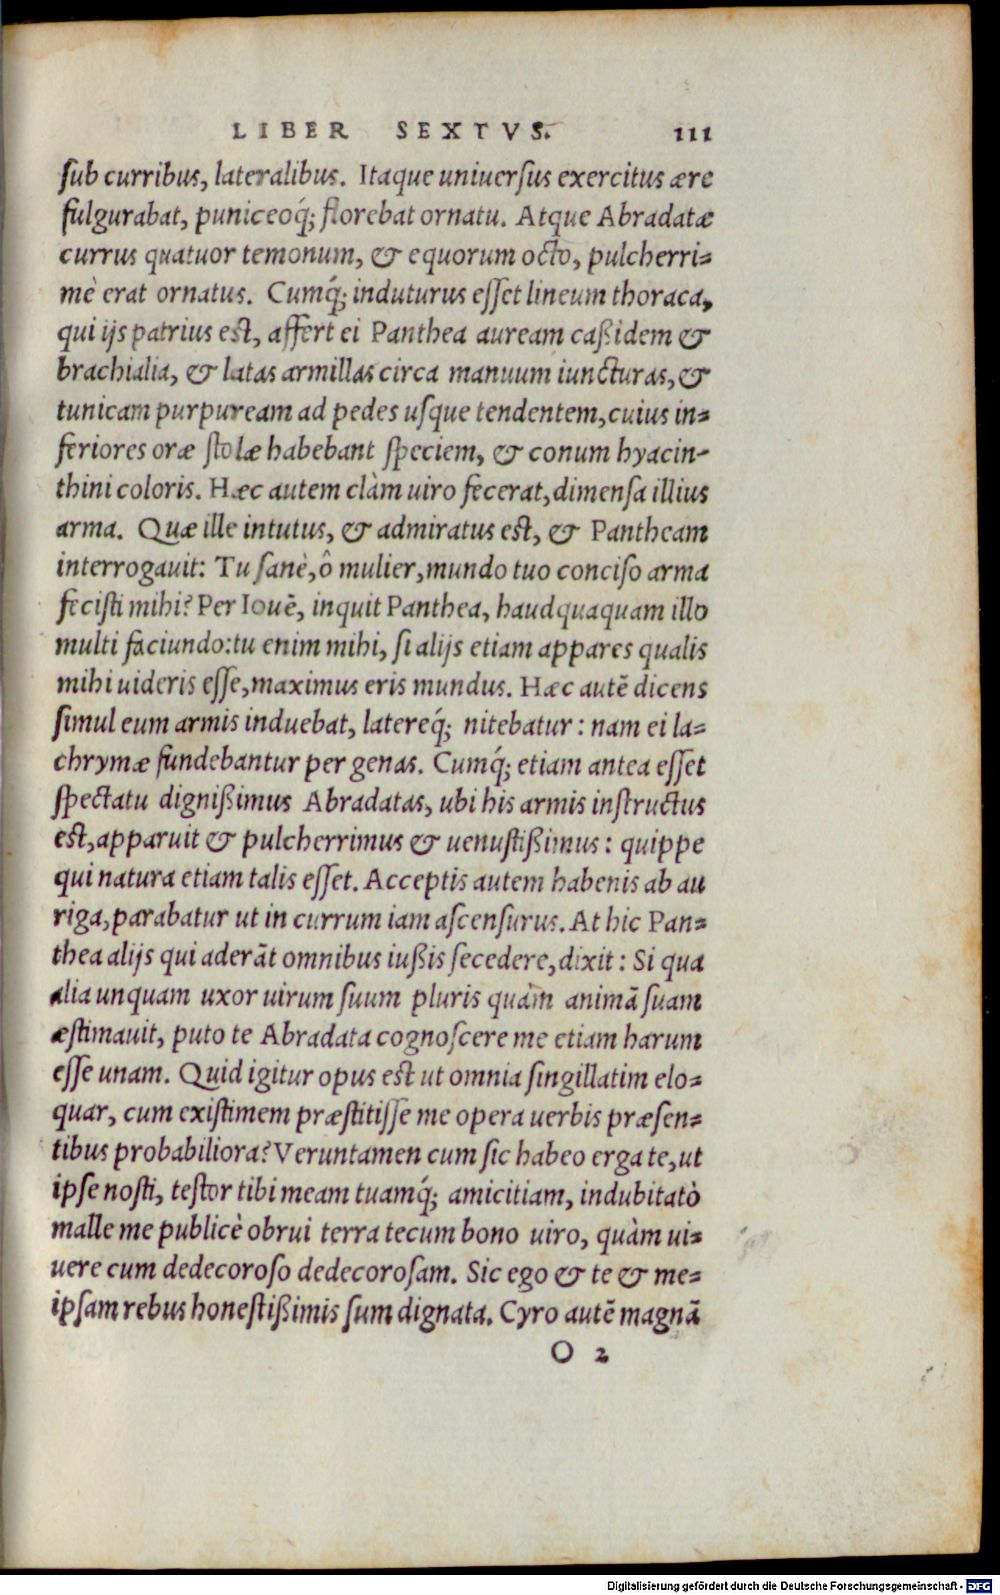 LIBER SEXTVS. 111
sub curribus, lateralibus. Itaque uniuersus exercitus ære
fulgurabat, puniceoq́; florebat ornatu. Atque Abradatæ
currus quatuor temonum, & equorum octo, pulcherri=
mè erat ornatus. Cumq́; induturus esset lineum thoraca,
qui ijs patrius est, affert ei Panthea auream caßidem &
brachialia, & latas armillas circa manuum iuncturas, &
tunicam purpuream ad pedes usque tendentem, cuius in=
feriores oræ stolæ habebant speciem, & conum hyacin-
thini coloris. Hæc autem clàm uiro fecerat, dimensa illius
arma. Quæ ille intutus, & admiratus est, & Pantheam
interrogauit: Tu sanè, ô mulier, mundo tuo conciso arma
fecisti mihi? Per Iouē, inquit Panthea, haudquaquam illo
multi faciundo: tu enim mihi, si alijs etiam appares qualis
mihi uideris esse, maximus eris mundus. Hæc autē dicens
simul eum armis induebat, latereq́; nitebatur: nam ei la=
chrymæ fundebantur per genas. Cumq́; etiam antea esset
spectatu dignißimus Abradatas, ubi his armis instructus
est, apparuit & pulcherrimus & uenustißimus: quippe
qui natura etiam talis esset. Acceptis autem habenis ab au
riga, parabatur ut in currum iam ascensurus. At hic Pan=
thea alijs qui aderāt omnibus iußis secedere, dixit: Si qua
alia unquam uxor uirum suum pluris quàm animā suam
æstimauit, puto te Abradata cognoscere me etiam harum
esse unam. Quid igitur opus est ut omnia singillatim elo=
quar, cum existimem præstitisse me opera uerbis præsen=
tibus probabiliora? Veruntamen cum sic habeo erga te, ut
ipse nosti, testor tibi meam tuamq́; amicitiam, indubitatò
malle me publicè obrui terra tecum bono uiro, quàm ui=
uere cum dedecoroso dedecorosam. Sic ego & te & me=
ipsam rebus honestißimis sum dignata. Cyro autē magnā
O 2
Digitalisierung gefördert durch die Deutsche Forschungsgemeinschaft - DFG